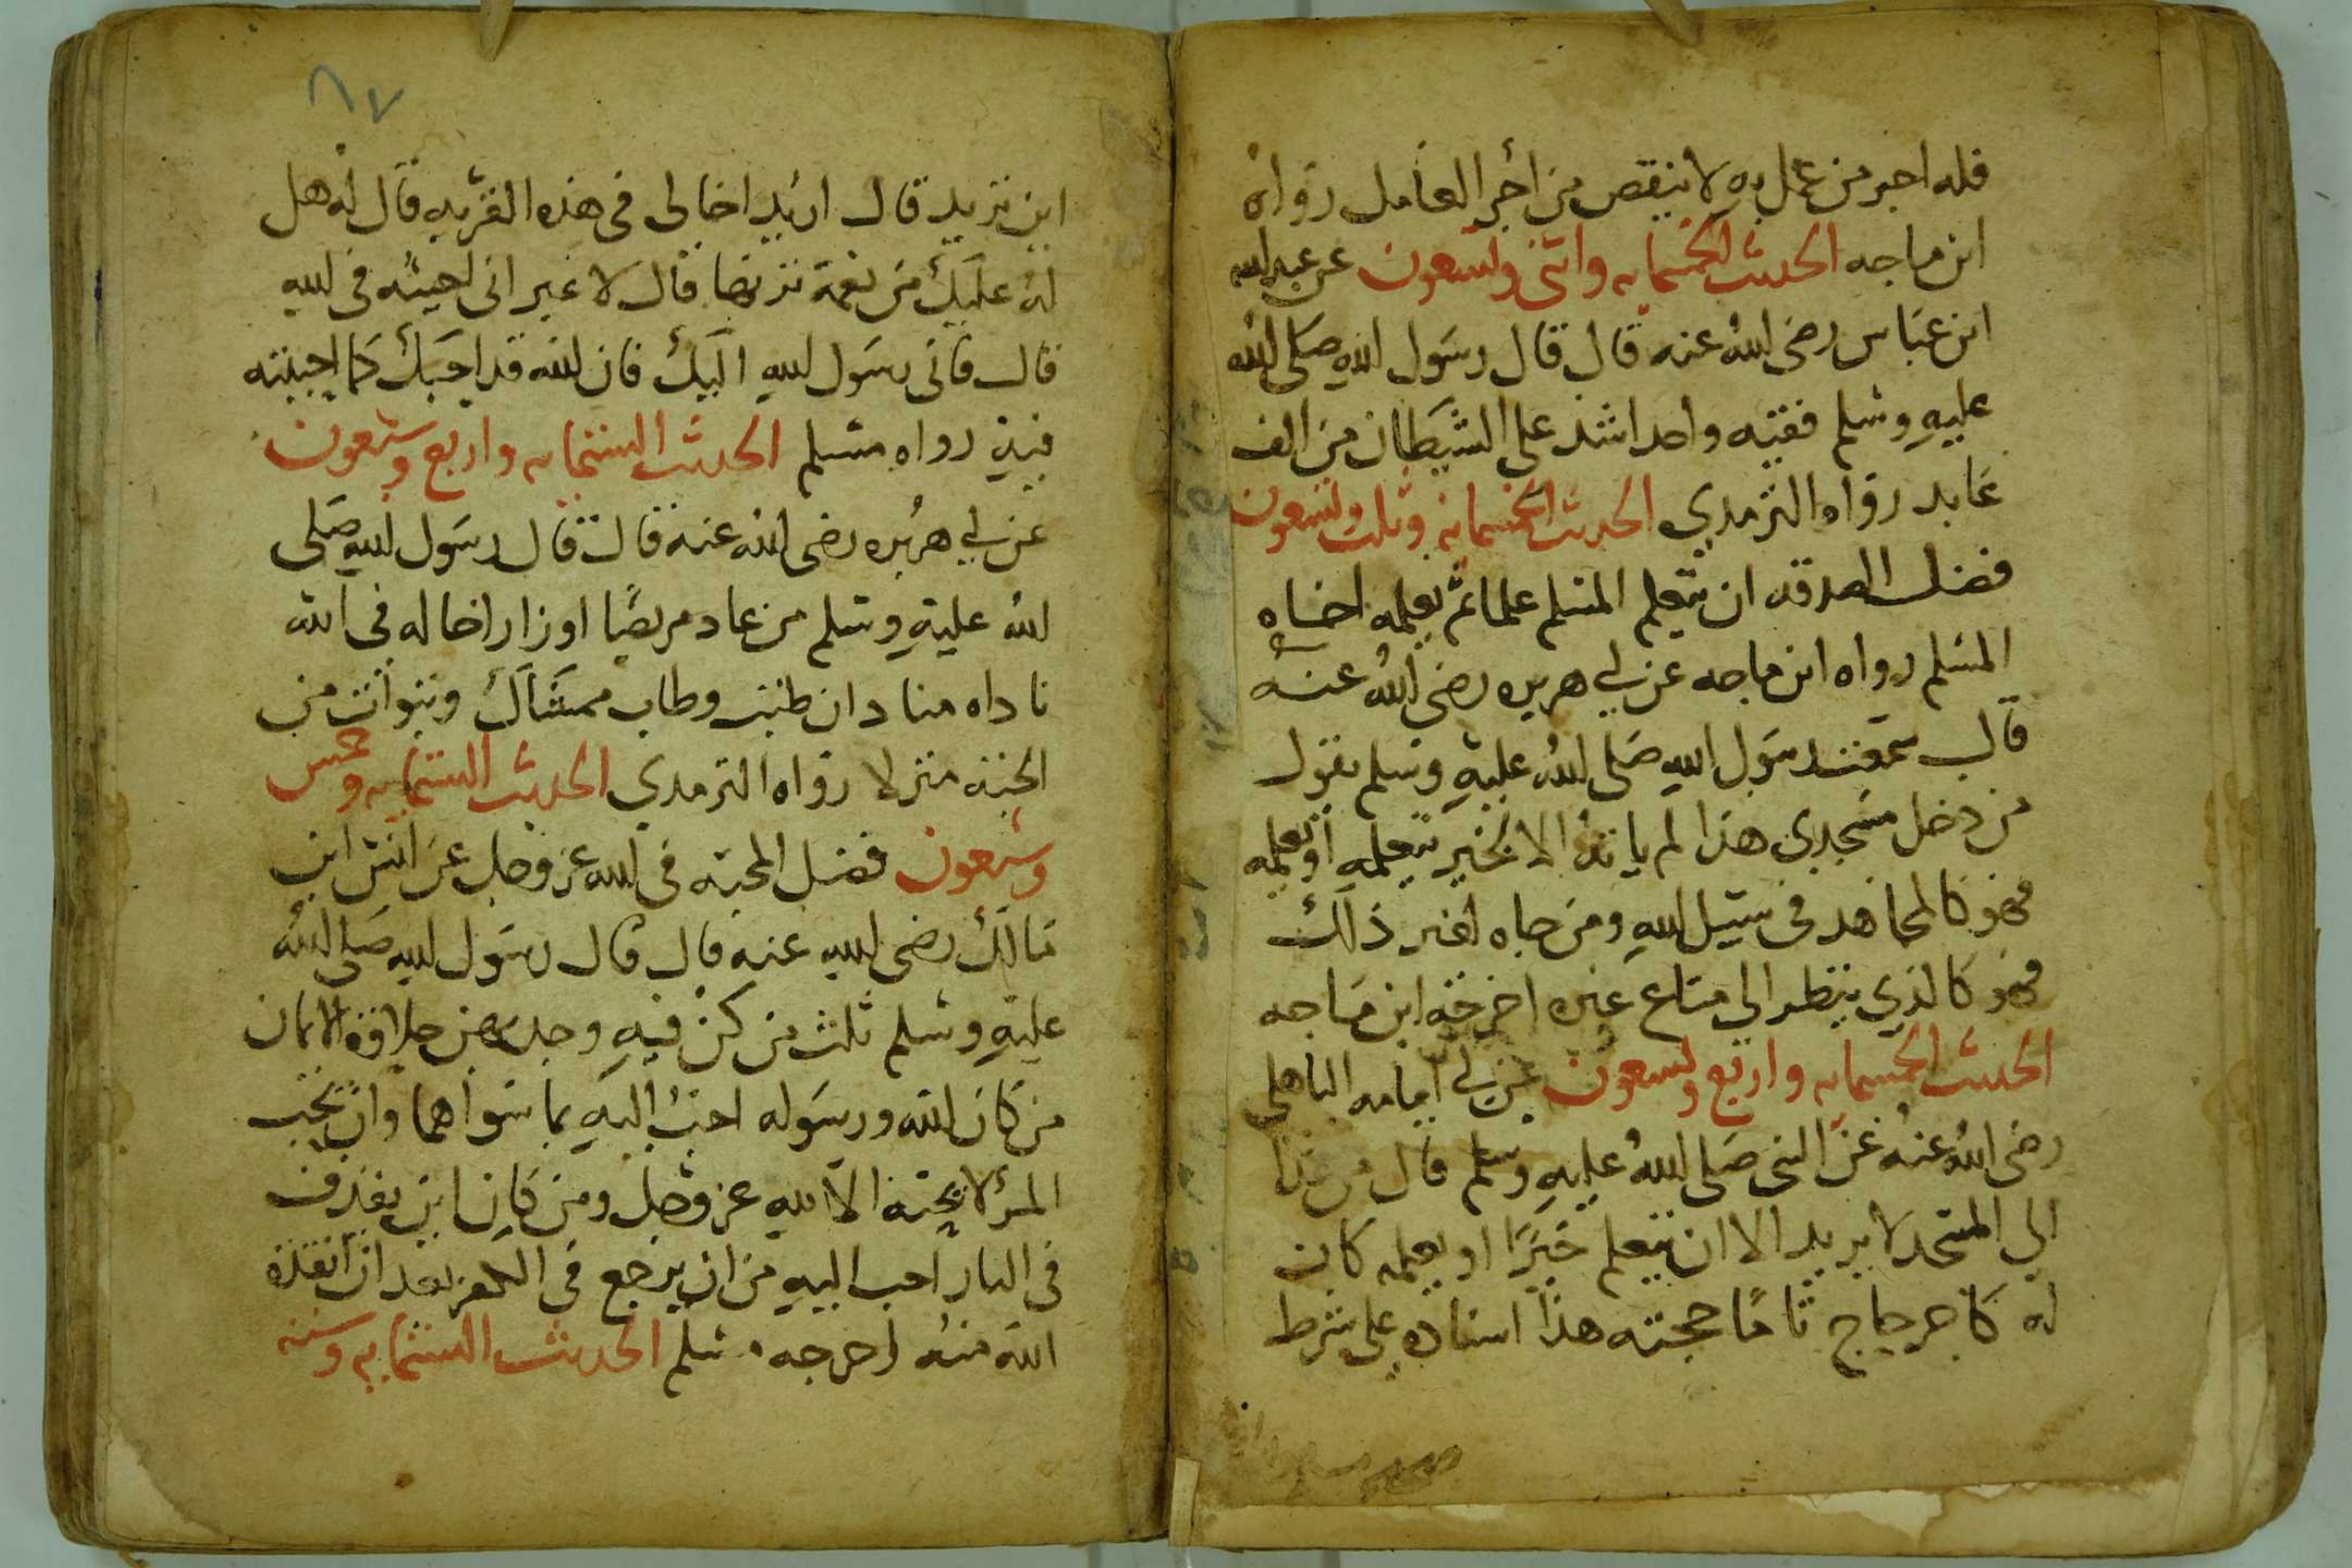 فله اجر من عمل به لا ينقص من أجر العامل رواه
ابن ماجه الحديث الخمسمايه واثنى وتسعون عن عبد الله
ابن عباس رضى الله عنه قال قال رسول الله صلى الله
عليه وسلم فقيه واحد اشد على الشيطان من الف
عابد رواه الترمدي الحديث الخمسمايه وثلث وتسعون
فضل الصدقه ان يتعلم المسلم علما ثم يعلمه اخاه
المسلم رواه ابن ماجه عن ابي هريره رضى الله عنه
قال سمعت رسول الله صلى الله عليه وسلم يقول
من دخل مسجدي هذا لم ياته الا لخير يتعلمه او يعلمه
فهو كالمجاهد فى سبيل الله ومن جاه لغير ذلك
فهو كالذي ينظر الى متاع غيره اخرجه ابن ماجه
الحديث الخمسمايه واربع وتسعون عن ابي امامه الباهلى
رضى الله عنه عن النبى صلى الله عليه وسلم قال من غدا
الى المسجد لا يريد الا ان يتعلم خيرًا او يعلمه كان
له كاجر حاج تامًا حجته هذا اسناده على شرط
٨٧
ابن تزيد قال اريد اخا لى فى هذه القريه قال له هل
له عليك من نعمة تزبها قال لا غير انى احببته فى الله
قال فانى رسول الله اليك فان الله قد احبك كما احببته
فيه رواه مسلم الحديث الستمايه واربع وتسعون
عن ابي هريره رضى الله عنه قال قال رسول الله صلى
الله عليه وسلم من عاد مريضًا او زار اخا له فى الله
ناداه مناد ان طبت وطاب ممشاك وتبوات من
الجنه منزلا رواه الترمدي الحديث الستمايه وخمس
وتسعون فضل المحبه فى الله عز وجل عن انس ابن
مالك رضى الله عنه قال قال رسول الله صلى الله
عليه وسلم ثلث من كن فيه وجد بهن حلاوة الايمان
من كان الله ورسوله احب اليه مما سواهما وان يحب
المرء لا يحبه الا لله عز وجل ومن كان ان يقذف
فى النار احب اليه من ان يرجع فى الكفر بعد ان انقذه
الله منه اخرجه مسلم الحديث الستمايه وسته